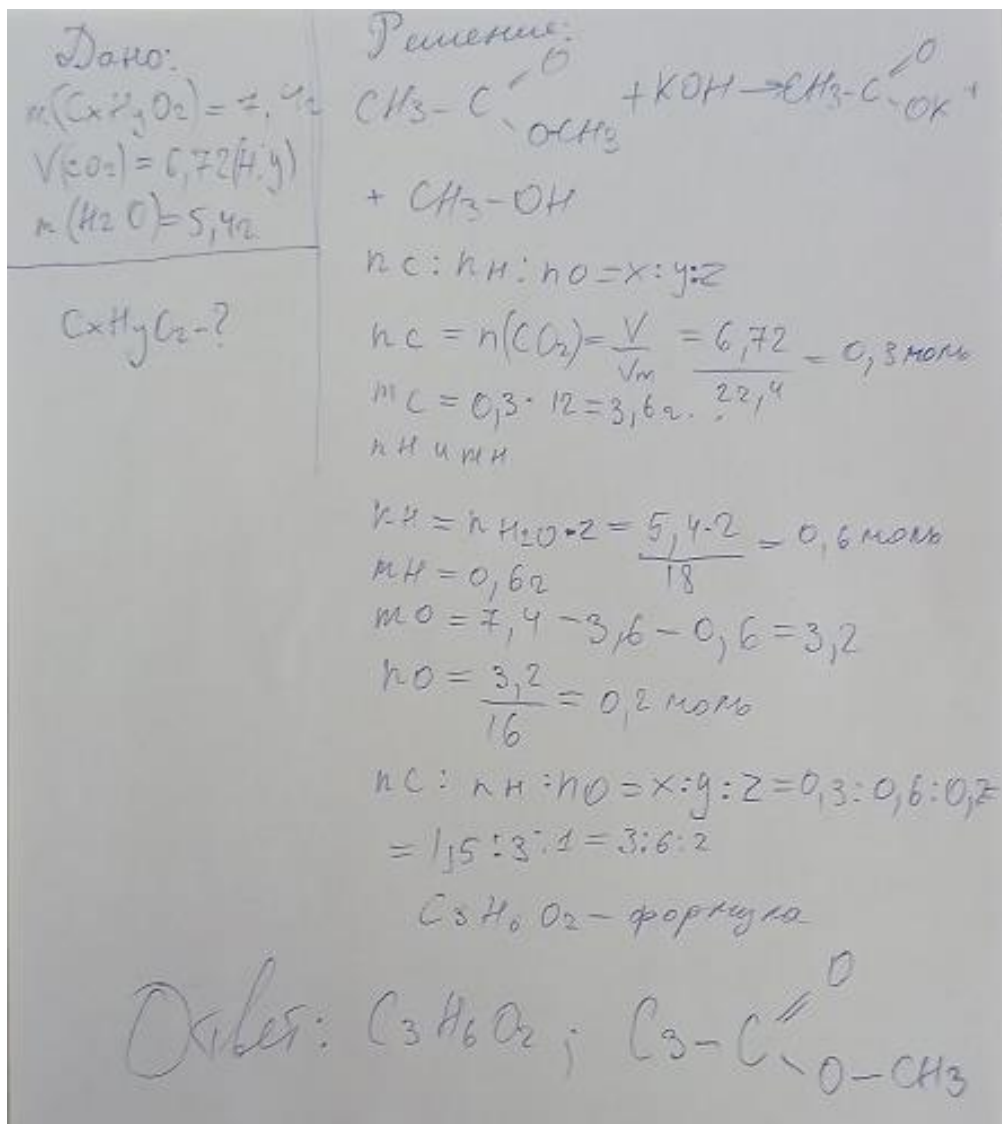 Дано:
m(CxHyO2) = 7,4г
V(CO2) = 6,72(н.у)
m(H2O)=5,4г
CxHyO2-?
Решение:
O
CH3-C + KOH → CH3-C O
OCH3 OK +
+ CH3-OH
nC : nH : nO = x:y:z
nC = n(CO2) = V = 6,72 = 0,3 моль
Vm 22,4
mC = 0,3 · 12 = 3,6г.
nH и mH
nH = nH2O · 2 = 5,4·2 = 0,6 моль
18
mH = 0,6г
mO = 7,4 - 3,6 - 0,6 = 3,2
nO = 3,2 = 0,2 моль
16
nC : nH : nO = x:y:z = 0,3:0,6:0,2
= 1,5:3:1 = 3:6:2
C3H6O2 - формула
Ответ: C3H6O2; C3-C O
O-CH3